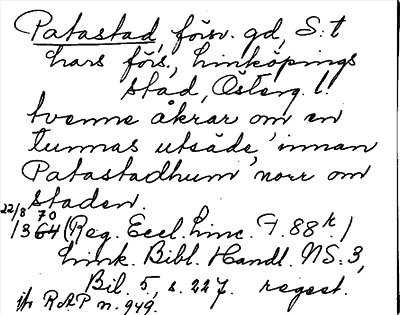 Patastad, försv. gd, S:t
Lars förs., Linköpings
stad, Österg. l.
tvenne åkrar om en
tunnas utsäde "innan
Patastadhum" norr om
staden.
22/8 70
1364 (Reg. Eccl. Linc. F. 88 r,)
Link. Bibl. Handl. NS: 3,
Bil. 5, s. 227. regest.
jfr RAP n. 949.